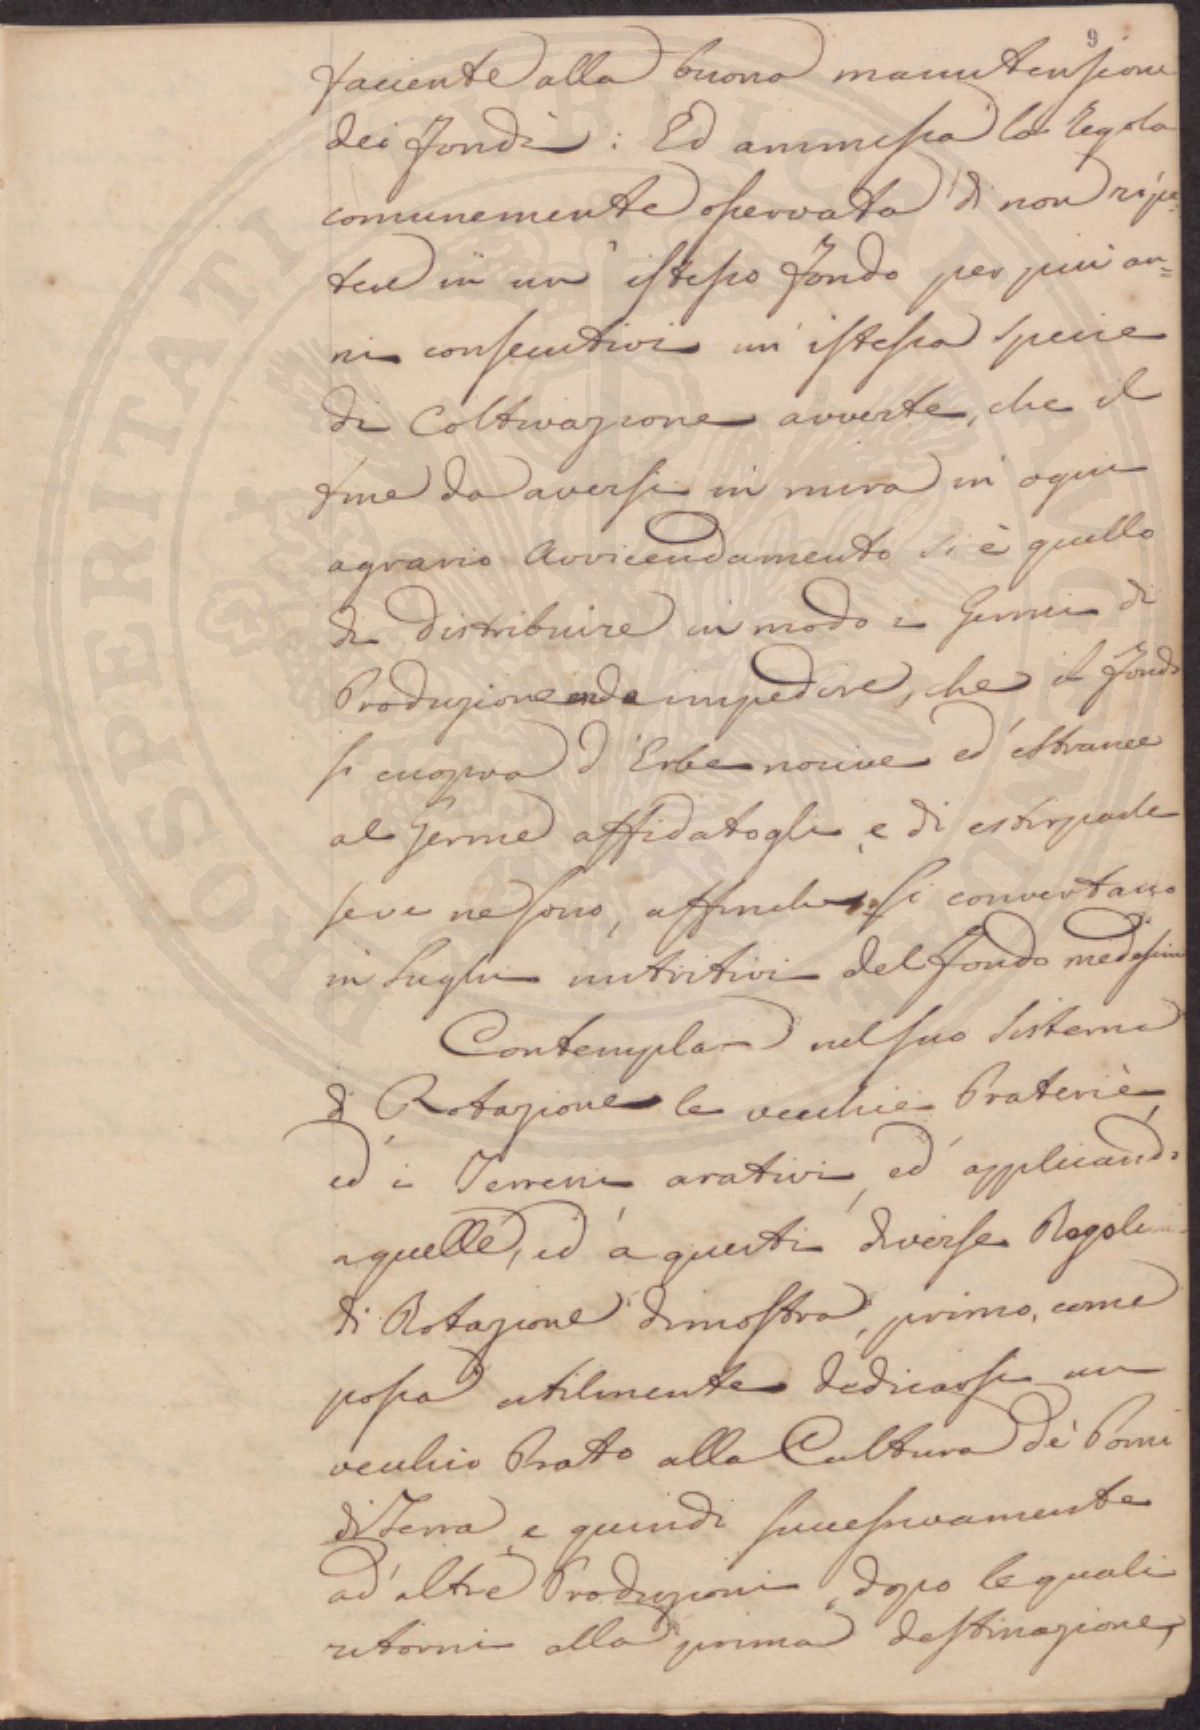 9
faciente alla buona manutensione
dei fondi: Ed ammessa la regola
comunemente osservata di non ripe=
tere in un istesso fondo per più an=
ni consecutivi un' istessa specie
di Coltivazione avverte, che il
fine da aversi in mira in ogni
agrario Avvicendamento si è quello
di distribuire in modo i Germi di
Produzione onde impedire, che il fondo
si cuopra d'Erbe nocive ed estranee
al Germe affidatogli, e di estirparle
seve ne sono, affinché si convertano
in sughi nutritivi del fondo medesimo
Contempla nel suo Sistema
di Rotazione le vecchie Praterie,
ed i Terreni arativi, ed applicando
a quelle, ed a questi diverse Regole
di Rotazione dimostra, primo, come
possa utilmente dedicarsi un
vecchio Prato alla Cultura de' Pomi
di Terra, e quindi successivamente
ad altre Produzioni, dopo le quali
ritorni alla prima destinazione,
PROSPERITATI PUBLICAE AUGENDAE